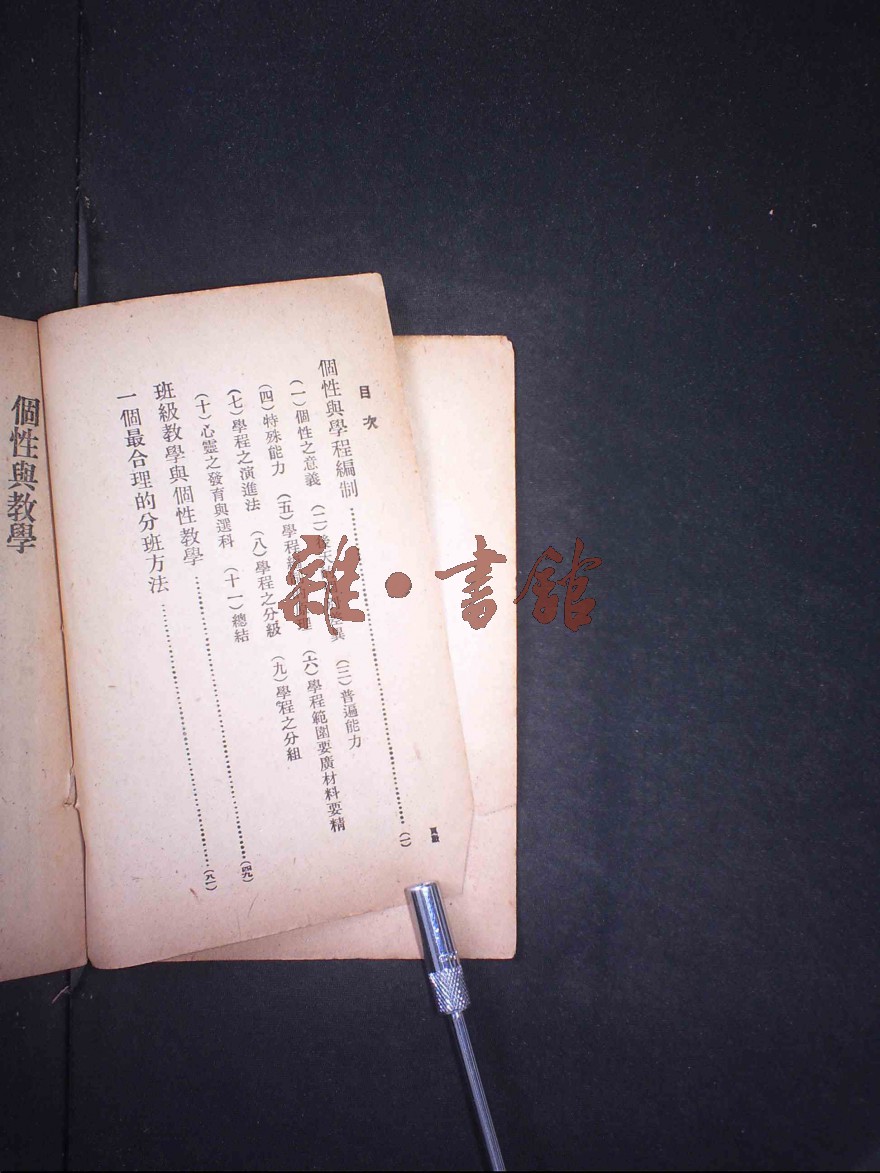 目次
頁數
個性與學程編制……(一)
(一)個性之意義 (二)後天 異 (三)普遍能力
(四)特殊能力 (五)學程 理 (六)學程範圍要廣材料要精
(七)學程之演進法 (八)學程之分級 (九)學程之分組
(十)心靈之發育與選科 (十一)總結
班級教學與個性教學……(四九)
一個最合理的分班方法……(九一)
個性與教學
雜·書館